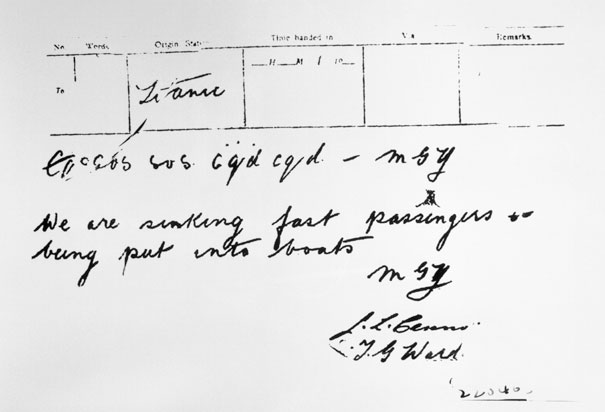 No. Words. Origin. Station Time handed in Via Remarks.
To Titanic H M
SOS SOS cqd cqd - MGY
We are sinking fast passengers
being put into boats
MGY
T G Ward